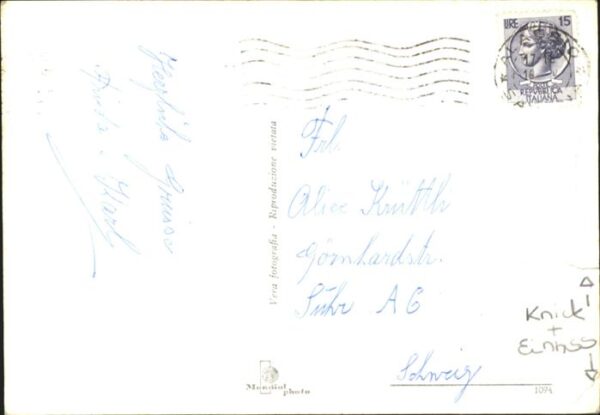 Herzliche Grüsse
Karl
LIRE 15
REPUBBLICA
ITALIANA
Vera fotografia - Riproduzione vietata
Frl.
Alice
Suhr AG
Schweiz
Knick
+
Einriss
Mondial
photo
1094